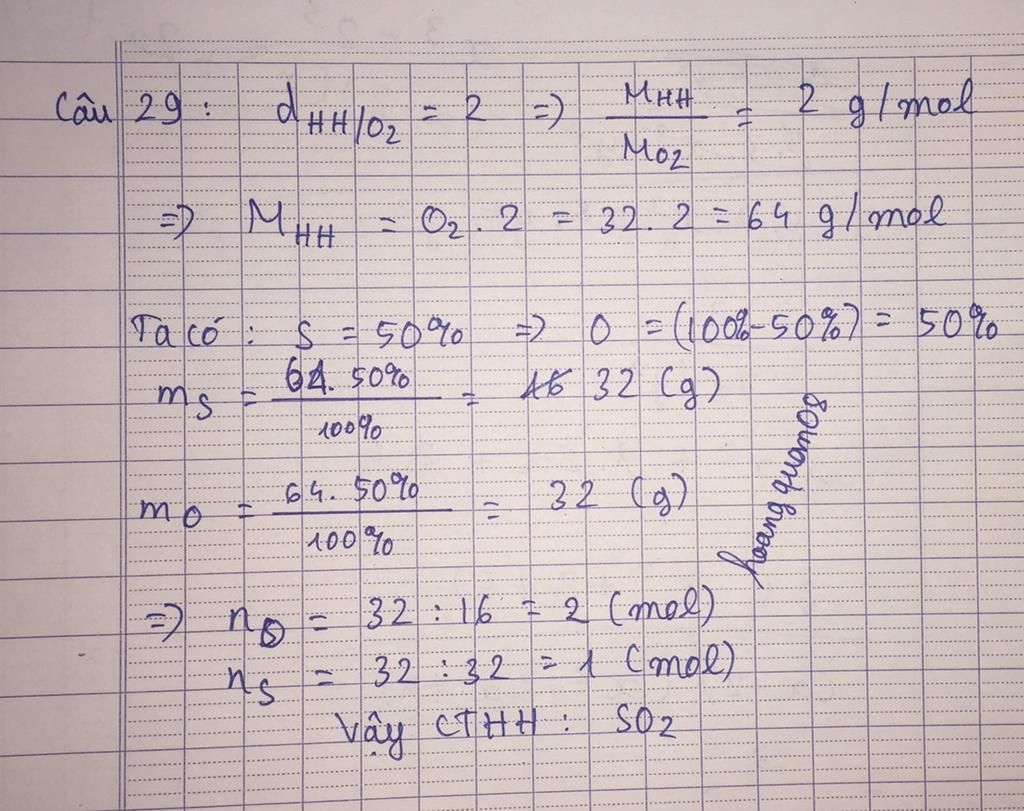 Câu 29 : dHH/O2 = 2 => MHH / MO2 = 2 g/mol
=> MHH = O2 . 2 = 32 . 2 = 64 g/mol
Ta có : S = 50% => O = (100%-50%) = 50%
mS = 64. 50% / 100% = 32 (g)
mO = 64. 50% / 100% = 32 (g)
hoangquan08
=> nO = 32 : 16 = 2 (mol)
nS = 32 : 32 = 1 (mol)
Vậy CTHH : SO2